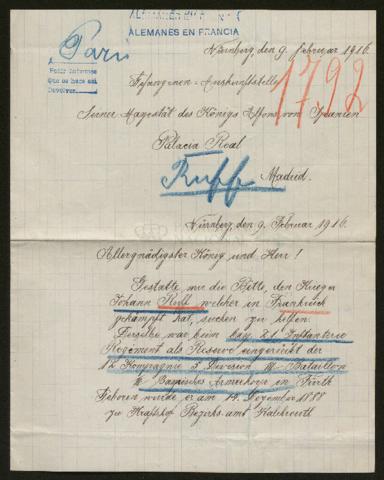 ALEMANES EN FRANCIA
Paris
Pedir informes
que se hara asi
Devolver
Nürnberg, den 9. Februar 1916.
1792
Gefangenen-Auskunftstelle
Seiner Magestät des Königs Alfons von Spanien
Palacia Real
Ruff Madrid.
Nürnberg, den 9. Februar 1916.
Allergnädigster König und Herr!
Gestatte mir die Bitte, den Krieger
Johann Ruff welcher in Frankreich
gekämpft hat, suchen zu helfen.
Derselbe war beim bay. 21 Infanterie
Regiment als Reserve eingerückt der
12 Kompagnie 5 Division III Bataillon
Bayrisches Armeekorps in Fürth
Geboren wurde er am 14. Dezember 1888
zu Krafthof Bezirks-amt